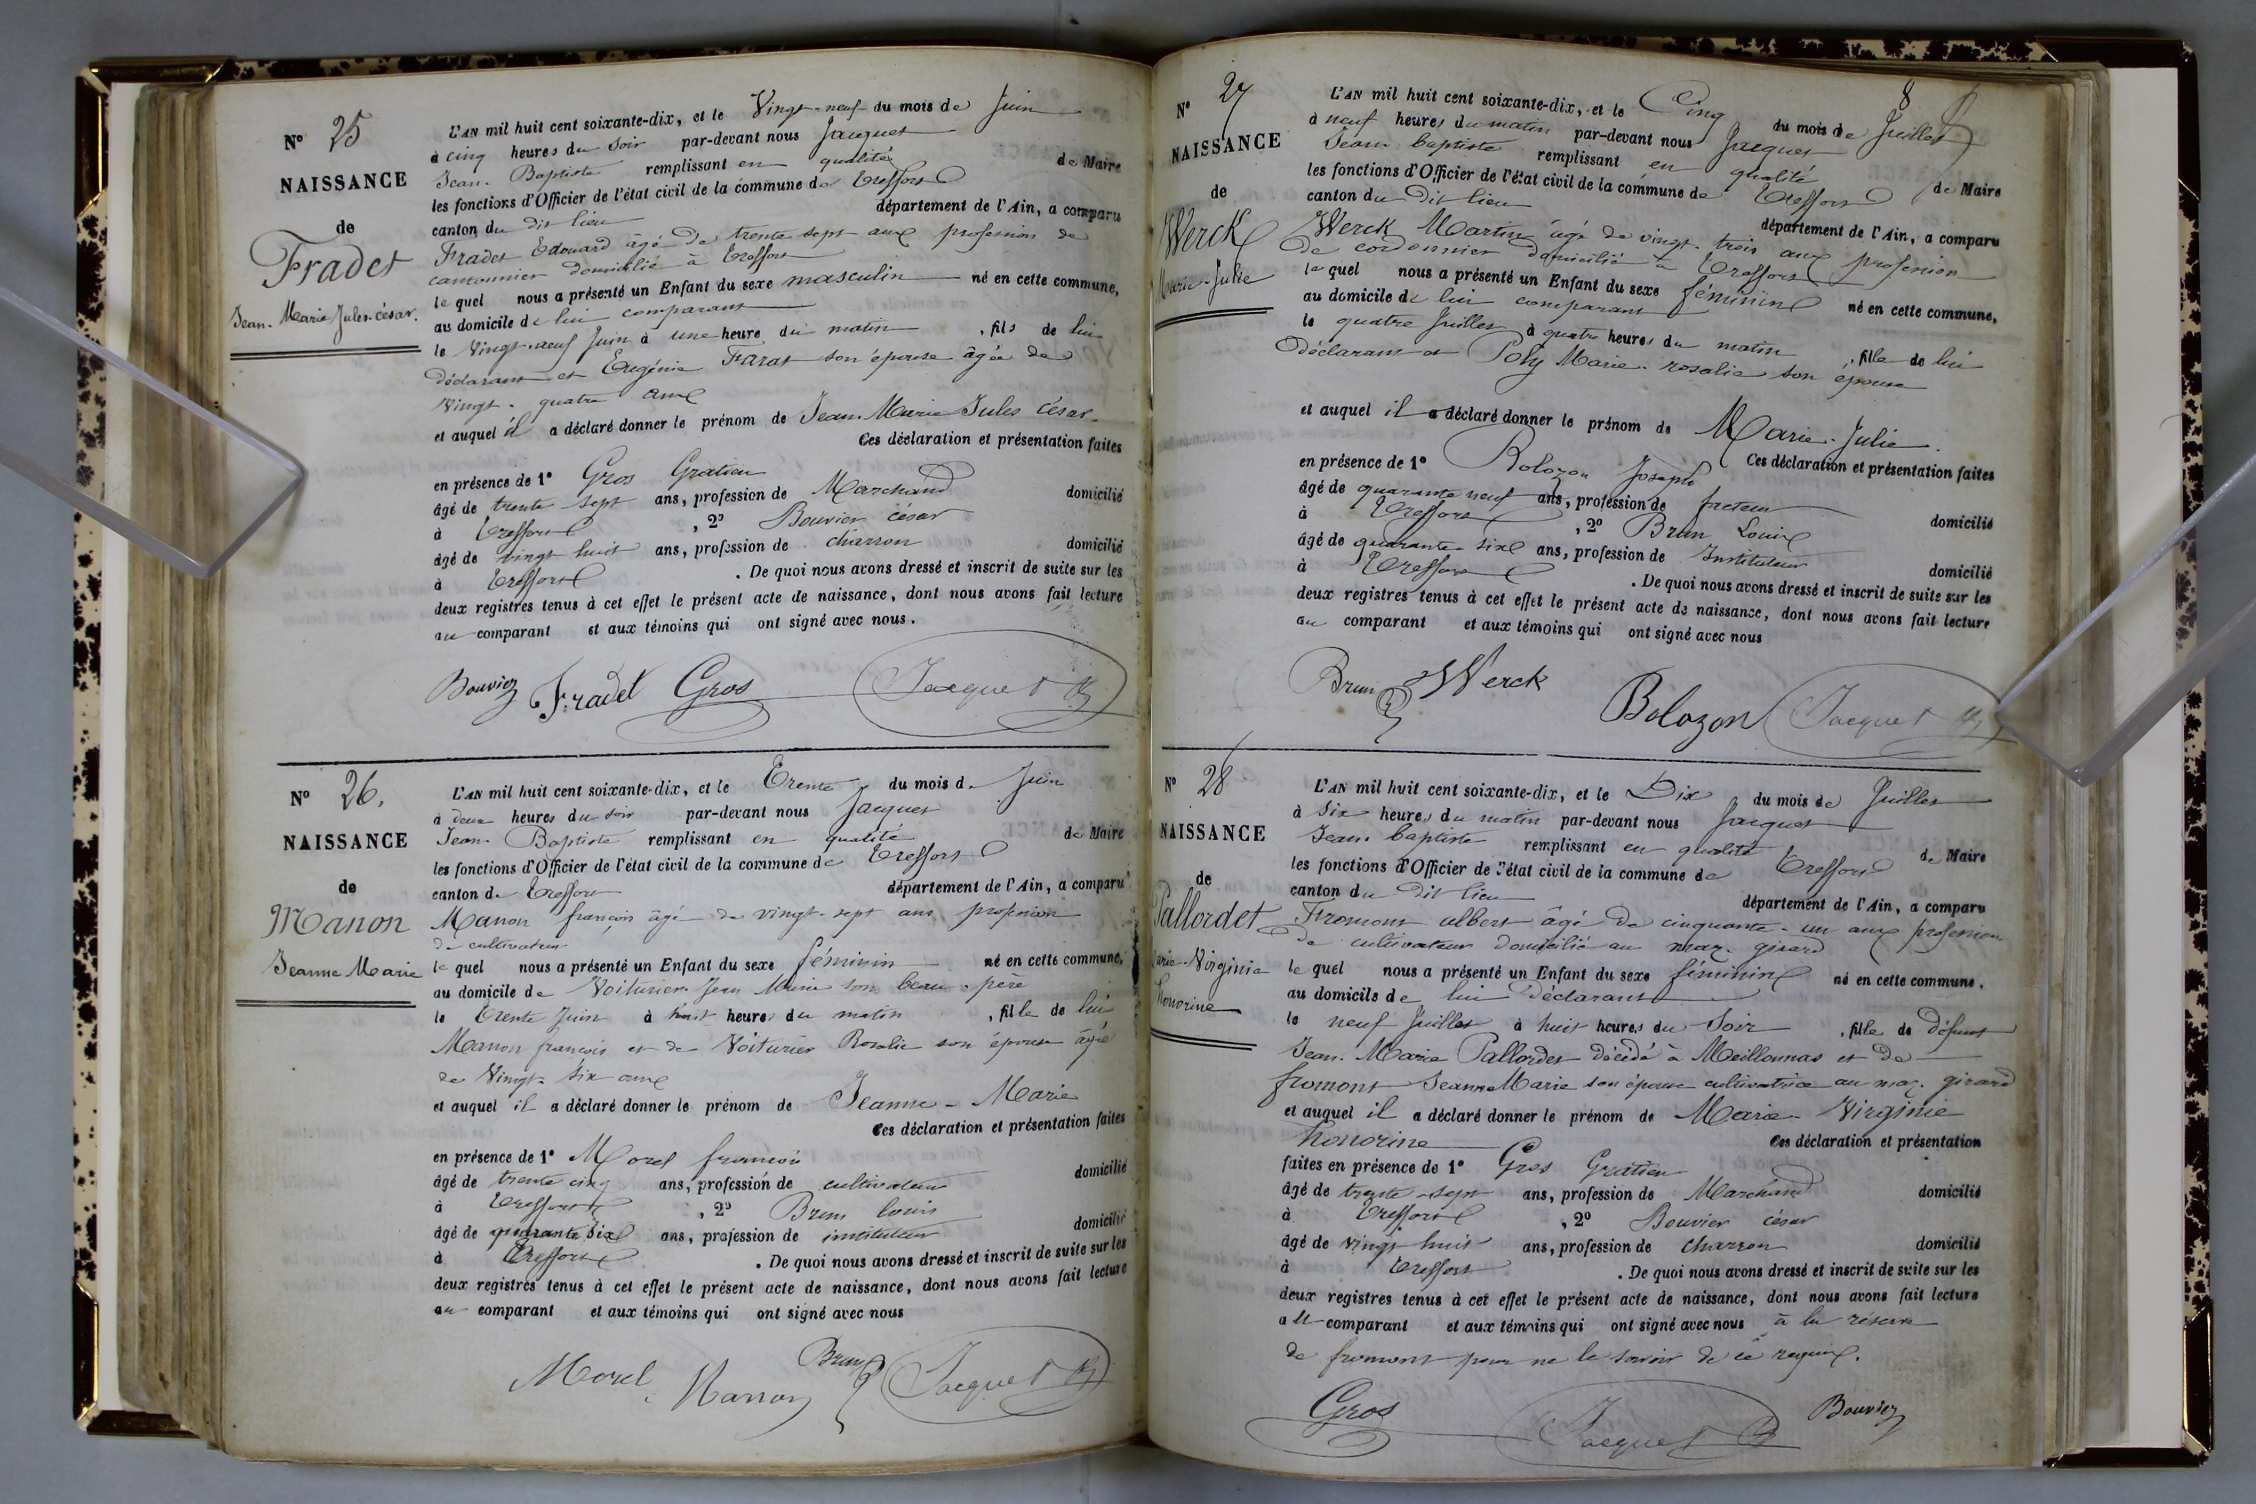 N° 25
NAISSANCE
de
Fradet
Jean-Marie Jules-César.
L'AN mil huit cent soixante-dix, et le Vingt-neuf du mois de Juin
à cinq heures du soir par-devant nous Jacquet
Jean-Baptiste remplissant en qualité de Maire
les fonctions d'Officier de l'état civil de la commune de Treffort
canton du dit lieu département de l'Ain, a comparu
Fradet Edouard âgé de trente sept ans profession de
cantonnier domicilié à Treffort
le quel nous a présenté un Enfant du sexe masculin né en cette commune,
au domicile de lui comparant
le Vingt-neuf Juin à une heure du matin, fils de lui
déclarant et Eugénie Farat son épouse âgée de
Vingt-quatre ans
et auquel il a déclaré donner le prénom de Jean-Marie Jules César
Ces déclaration et présentation faites
en présence de 1° Gros Gratien
âgé de trente sept ans, profession de Marchand domicilié
à Treffort, 2° Bouvier césar
âgé de vingt huit ans, profession de charron domicilié
à Treffort. De quoi nous avons dressé et inscrit de suite sur les
deux registres tenus à cet effet le présent acte de naissance, dont nous avons fait lecture
au comparant et aux témoins qui ont signé avec nous.
Bouvier Fradet Gros Jacquet
N° 26.
NAISSANCE
de
Manon
Jeanne Marie
L'AN mil huit cent soixante-dix, et le Trente du mois de Juin
à deux heures du soir par-devant nous Jacquet
Jean-Baptiste remplissant en qualité de Maire
les fonctions d'Officier de l'état civil de la commune de Treffort
canton de Treffort département de l'Ain, a comparu
Manon françois âgé de vingt-sept ans profession
de cultivateur
le quel nous a présenté un Enfant du sexe féminin né en cette commune,
au domicile de Voiturier Jean Marie son beau-père
le Trente Juin à huit heures du matin, fille de lui
Manon françois et de Voiturier Rosalie son épouse âgée
de Vingt-six ans
et auquel il a déclaré donner le prénom de Jeanne-Marie
Ces déclaration et présentation faites
en présence de 1° Morel françois
âgé de trente cinq ans, profession de cultivateur domicilié
à Treffort, 2° Brun louis
âgé de quarante six ans, profession de instituteur domicilié
à Treffort. De quoi nous avons dressé et inscrit de suite sur les
deux registres tenus à cet effet le présent acte de naissance, dont nous avons fait lecture
au comparant et aux témoins qui ont signé avec nous
Morel Manon Brun Jacquet
8
N° 27
NAISSANCE
de
Werck
Marie-Julie
L'AN mil huit cent soixante-dix, et le Cinq du mois de Juillet
à neuf heures du matin par-devant nous Jacquet
Jean-baptiste remplissant en qualité de Maire
les fonctions d'Officier de l'état civil de la commune de Treffort
canton du dit lieu département de l'Ain, a comparu
Werck Martin âgé de vingt-trois ans profession
de cordonnier domicilié à Treffort
le quel nous a présenté un Enfant du sexe féminin né en cette commune,
au domicile de lui comparant
le quatre Juillet à quatre heures du matin, fille de lui
déclarant et Poly Marie-rosalie son épouse
et auquel il a déclaré donner le prénom de Marie-Julie.
Ces déclaration et présentation faites
en présence de 1° Bolozon Joseph
âgé de quarante neuf ans, profession de facteur domicilié
à Treffort, 2° Brun Louis
âgé de quarante-six ans, profession de Instituteur domicilié
à Treffort. De quoi nous avons dressé et inscrit de suite sur les
deux registres tenus à cet effet le présent acte de naissance, dont nous avons fait lecture
au comparant et aux témoins qui ont signé avec nous
Brun Werck Bolozon Jacquet
N° 28
NAISSANCE
de
Pallordet
Marie-Virginie
honorine
L'AN mil huit cent soixante-dix, et le Dix du mois de Juillet
à Six heures du matin par-devant nous Jacquet
Jean-baptiste remplissant en qualité de Maire
les fonctions d'Officier de l'état civil de la commune de Treffort
canton du dit lieu département de l'Ain, a comparu
Fromont albert âgé de cinquante-un ans profession
de cultivateur domicilié au maz-girard
le quel nous a présenté un Enfant du sexe féminin né en cette commune,
au domicile de lui Déclarant
le neuf Juillet à huit heures du Soir, fille de défunt
Jean-Marie Pallordet décédé à Meillonnas et de
fromont Jeanne Marie son épouse cultivatrice au maz-girard
et auquel il a déclaré donner le prénom de Marie-Virginie
honorine Ces déclaration et présentation
faites en présence de 1° Gros Gratien
âgé de trente-sept ans, profession de Marchand domicilié
à Treffort, 2° Bouvier césar
âgé de vingt huit ans, profession de charron domicilié
à Treffort. De quoi nous avons dressé et inscrit de suite sur les
deux registres tenus à cet effet le présent acte de naissance, dont nous avons fait lecture
au comparant et aux témoins qui ont signé avec nous à la réserve
de fromont pour ne le savoir de ce requis.
Gros Jacquet Bouvier